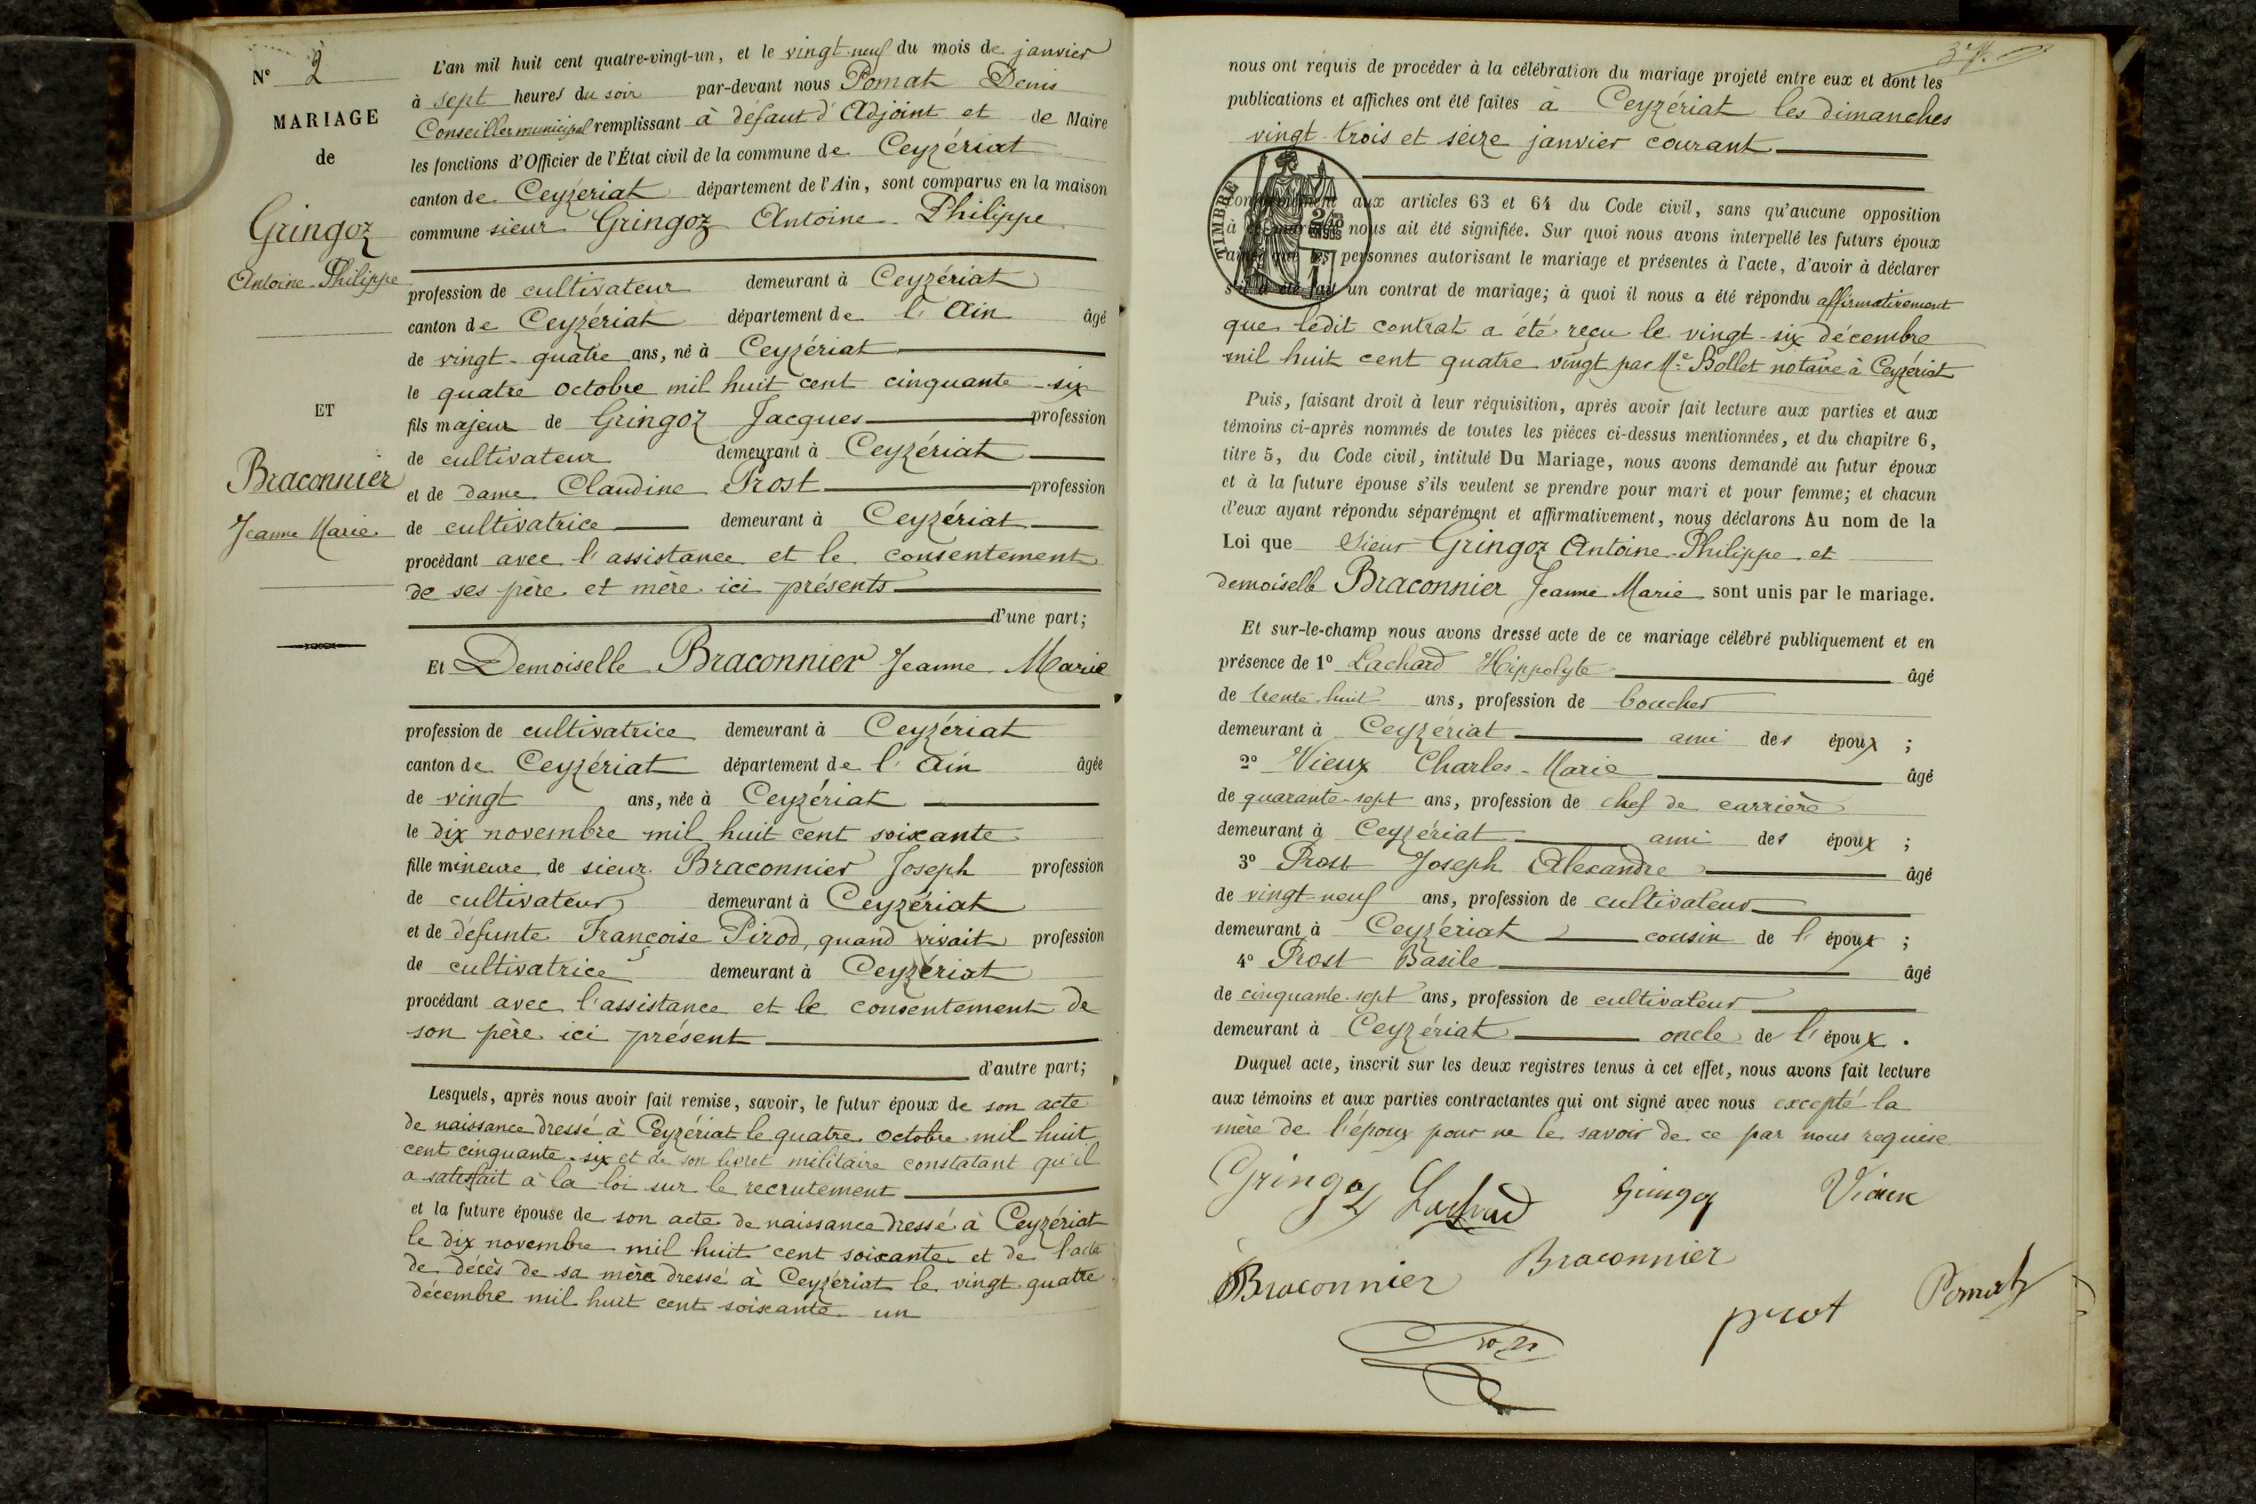 N° 2
MARIAGE
de
Gringoz
Antoine-Philippe
ET
Braconnier
Jeanne Marie
L'an mil huit cent quatre-vingt-un, et le vingt-neuf du mois de janvier
à sept heures du soir par-devant nous Pomat Denis
Conseiller municipal remplissant à défaut d'Adjoint et de Maire
les fonctions d'Officier de l'État civil de la commune de Ceyzériat
canton de Ceyzériat département de l'Ain, sont comparus en la maison
commune sieur Gringoz Antoine-Philippe
profession de cultivateur demeurant à Ceyzériat
canton de Ceyzériat département de l'Ain âgé
de vingt-quatre ans, né à Ceyzériat
le quatre octobre mil huit cent cinquante-six
fils majeur de Gringoz Jacques profession
de cultivateur demeurant à Ceyzériat
et de dame Claudine Prost profession
de cultivatrice demeurant à Ceyzériat
procédant avec l'assistance et le consentement
de ses père et mère ici présents
d'une part;
Et Demoiselle Braconnier Jeanne Marie
profession de cultivatrice demeurant à Ceyzériat
canton de Ceyzériat département de l'Ain âgée
de vingt ans, née à Ceyzériat
le dix novembre mil huit cent soixante
fille mineure de sieur Braconnier Joseph profession
de cultivateur demeurant à Ceyzériat
et de défunte Françoise Pirod, quand vivait profession
de cultivatrice demeurant à Ceyzériat
procédant avec l'assistance et le consentement de
son père ici présent
d'autre part;
Lesquels, après nous avoir fait remise, savoir, le futur époux de son acte
de naissance dressé à Ceyzériat le quatre octobre mil huit
cent cinquante-six et de son livret militaire constatant qu'il
a satisfait à la loi sur le recrutement
et la future épouse de son acte de naissance dressé à Ceyzériat
le dix novembre mil huit cent soixante et de l'acte
de décès de sa mère dressé à Ceyzériat le vingt-quatre
décembre mil huit cent soixante un
nous ont requis de procéder à la célébration du mariage projeté entre eux et dont les
publications et affiches ont été faites à Ceyzériat les dimanches
vingt-trois et seize janvier courant
TIMBRE
conformément aux articles 63 et 64 du Code civil, sans qu'aucune opposition
à ce mariage nous ait été signifiée. Sur quoi nous avons interpellé les futurs époux
ainsi que les personnes autorisant le mariage et présentes à l'acte, d'avoir à déclarer
s'il a été fait un contrat de mariage; à quoi il nous a été répondu affirmativement
que ledit contrat a été reçu le vingt-six décembre
mil huit cent quatre vingt par Me Bollet notaire à Ceyzériat
Puis, faisant droit à leur réquisition, après avoir fait lecture aux parties et aux
témoins ci-après nommés de toutes les pièces ci-dessus mentionnées, et du chapitre 6,
titre 5, du Code civil, intitulé Du Mariage, nous avons demandé au futur époux
et à la future épouse s'ils veulent se prendre pour mari et pour femme; et chacun
d'eux ayant répondu séparément et affirmativement, nous déclarons Au nom de la
Loi que Sieur Gringoz Antoine-Philippe et
demoiselle Braconnier Jeanne Marie sont unis par le mariage.
Et sur-le-champ nous avons dressé acte de ce mariage célébré publiquement et en
présence de 1° Lachard Hippolyte âgé
de trente-huit ans, profession de boucher
demeurant à Ceyzériat ami des époux ;
2° Vieux Charles-Marie âgé
de quarante-sept ans, profession de chef de carrière
demeurant à Ceyzériat ami des époux ;
3° Prost Joseph Alexandre âgé
de vingt-neuf ans, profession de cultivateur
demeurant à Ceyzériat cousin de l'époux ;
4° Prost Basile âgé
de cinquante-sept ans, profession de cultivateur
demeurant à Ceyzériat oncle de l'époux.
Duquel acte, inscrit sur les deux registres tenus à cet effet, nous avons fait lecture
aux témoins et aux parties contractantes qui ont signé avec nous excepté la
mère de l'époux pour ne le savoir de ce par nous requise
Gringoz Lachard Gringoz Vieux
Braconnier Braconnier
prot Pomat